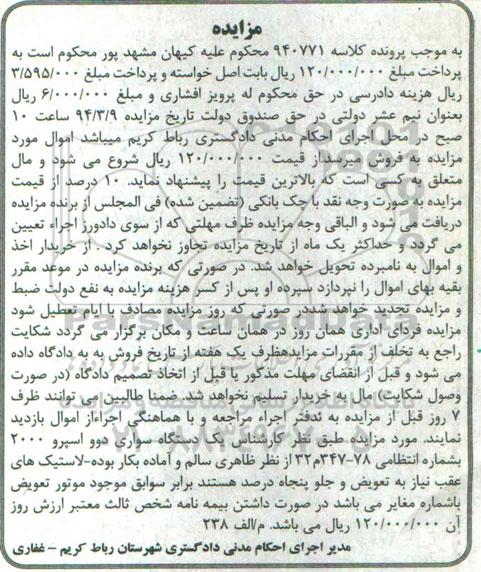 مزایده
به موجب پرونده کلاسه ۹۴۰۷۷۱ محکوم علیه کیهان مشهد پور محکوم است به
پرداخت مبلغ ۱۲۰/۰۰۰/۰۰۰ ریال بابت اصل خواسته و پرداخت مبلغ ۳/۵۹۵/۰۰۰
ریال هزینه دادرسی در حق محکوم له پرویز افشاری و مبلغ ۶/۰۰۰/۰۰۰ ریال
بعنوان نیم عشر دولتی در حق صندوق دولت تاریخ مزایده ۹۴/۳/۹ ساعت ۱۰
صبح در محل اجرای احکام مدنی دادگستری رباط کریم میباشد اموال مورد
مزایده به فروش میرسد.از قیمت ۱۲۰/۰۰۰/۰۰۰ ریال شروع می شود و مال
متعلق به کسی است که بالاترین قیمت را پیشنهاد نماید. ۱۰ درصد از قیمت
مزایده به صورت وجه نقد با چک بانکی (تضمین شده) فی المجلس از برنده مزایده
دریافت می شود و الباقی وجه مزایده ظرف مهلتی که از سوی دادورز اجراء تعیین
می گردد و حداکثر یک ماه از تاریخ مزایده تجاوز نخواهد کرد . از خریدار اخذ
و اموال به نامبرده تحویل خواهد شد. در صورتی که برنده مزایده در موعد مقرر
بقیه بهای اموال را نپردازد سپرده او پس از کسر هزینه مزایده به نفع دولت ضبط
و مزایده تجدید خواهد شددر صورتی که روز مزایده مصادف با ایام تعطیل شود
مزایده فردای اداری همان روز در همان ساعت و مکان برگزار می گردد شکایت
راجع به تخلف از مقررات مزایدهظرف یک هفته از تاریخ فروش به به دادگاه داده
می شود و قبل از انقضای مهلت مذکور یا قبل از اتخاذ تصمیم دادگاه (در صورت
وصول شکایت) مال به خریدار تسلیم نخواهد شد. ضمنا طالبین می توانند ظرف
۷ روز قبل از مزایده به ندفتر اجراء مراجعه و با هماهنگی اجراءاز اموال بازدید
نمایند. مورد مزایده طبق نظر کارشناس یک دستگاه سواری دوو اسپرو ۲۰۰۰
بشماره انتظامی ۷۸-۳۴۷م۳۲ از نظر ظاهری سالم و آماده بکار بوده-لاستیک های
عقب نیاز به تعویض و جلو پنجاه درصد هستند برابر سوابق موجود موتور تعویض
باشماره مغایر می باشد در صورت داشتن بیمه نامه شخص ثالث معتبر ارزش روز
آن ۱۲۰/۰۰۰/۰۰۰ ریال می باشد. م/الف ۲۳۸
مدیر اجرای احکام مدنی دادگستری شهرستان رباط کریم - غفاری